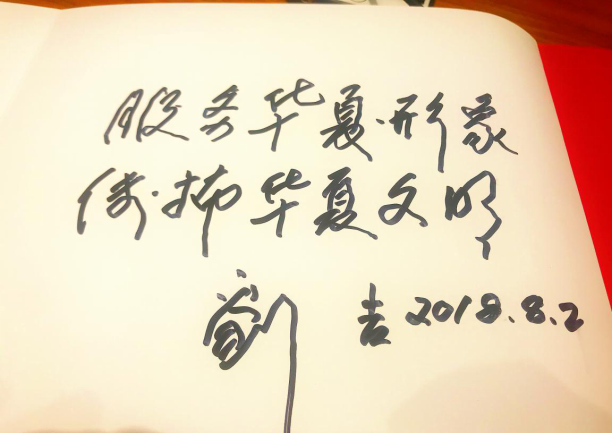 服务华夏形象
传播华夏文明
劉吉 2018.8.2